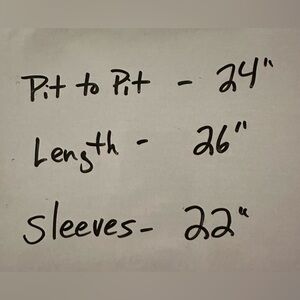 Pit to Pit - 24"
Length - 26"
Sleeves- 22"